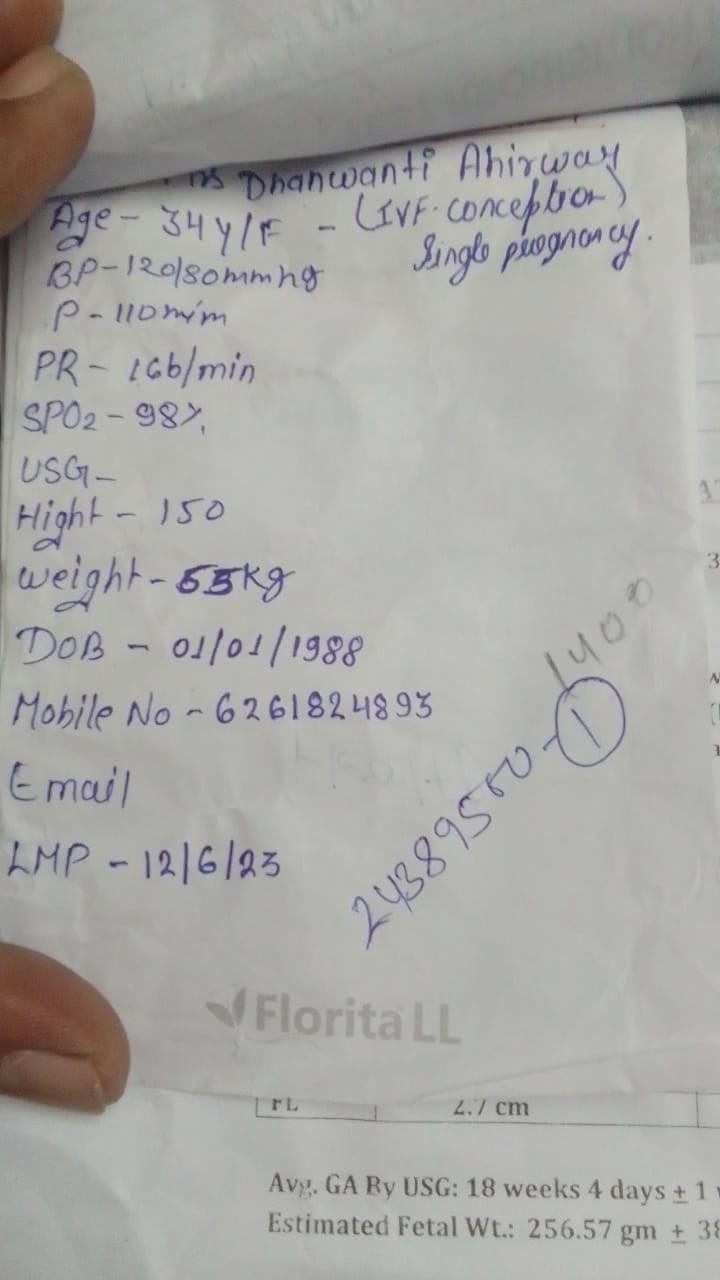 Dhanwanti Ahirway
Age - 34y/F - (IVF-conception)
Single pregnancy.
BP-120/80mmhg
P - 110 m/m
PR - 16b/min
SPO2 - 98%
USG -
Hight - 150
weight - 55kg
DOB - 01/01/1988
Mobile No - 6261824893
Email
LMP - 12/6/23
1400
24389500 - 1
Florita LL
FL 2.7 cm
Avg. GA By USG: 18 weeks 4 days ± 1
Estimated Fetal Wt.: 256.57 gm ± 38